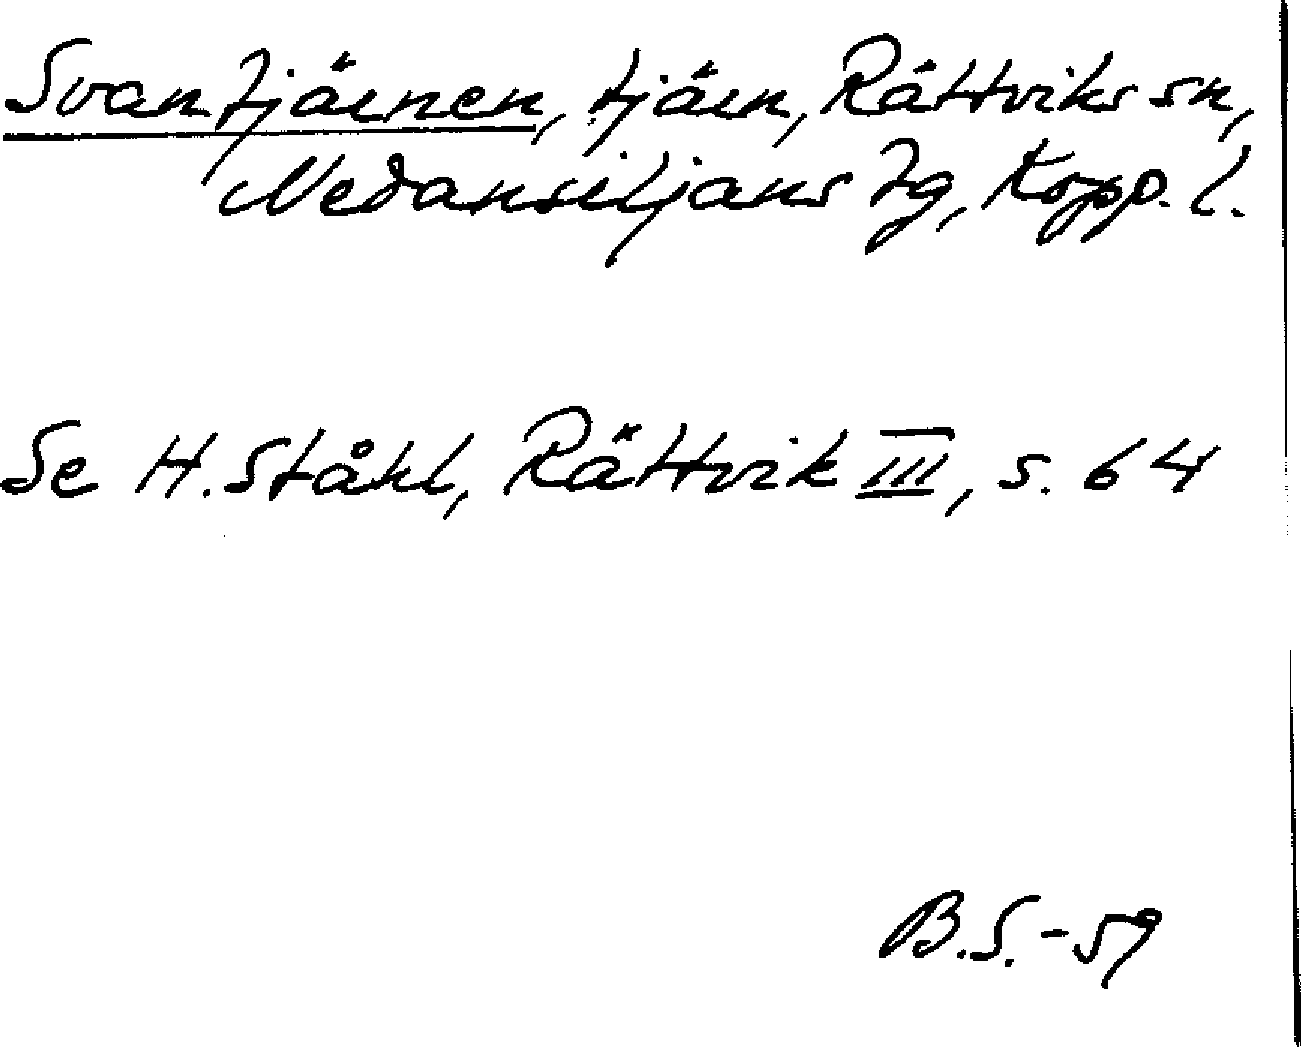 Svantjärnen, tjärn, Rättviks sn,
Nedansiljans tg, Kopp. l.
Se H. Ståhl, Rättvik III, s. 64
B.S.-59